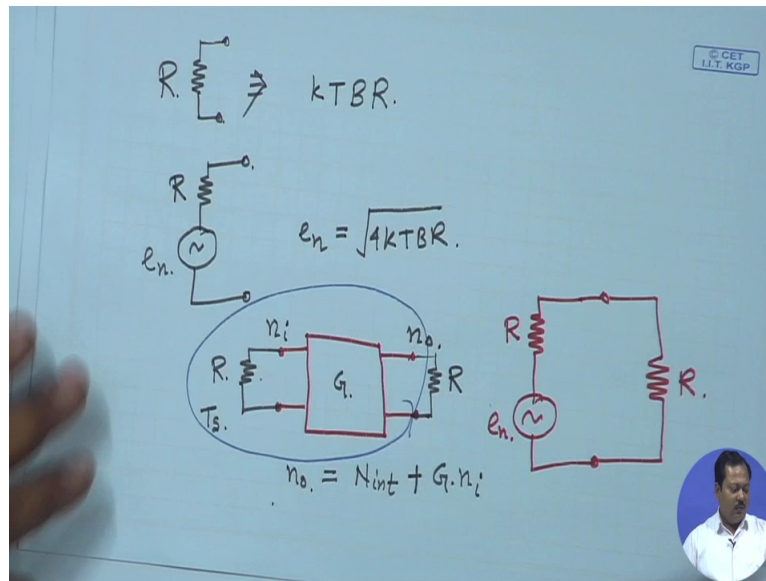 © CET
I.I.T. KGP
R. ⇛ KTBR.
R
en.
en = √4KTBR.
ni
no.
R.
G.
R
Ts.
R
R.
en.
no. = Nint + G.ni